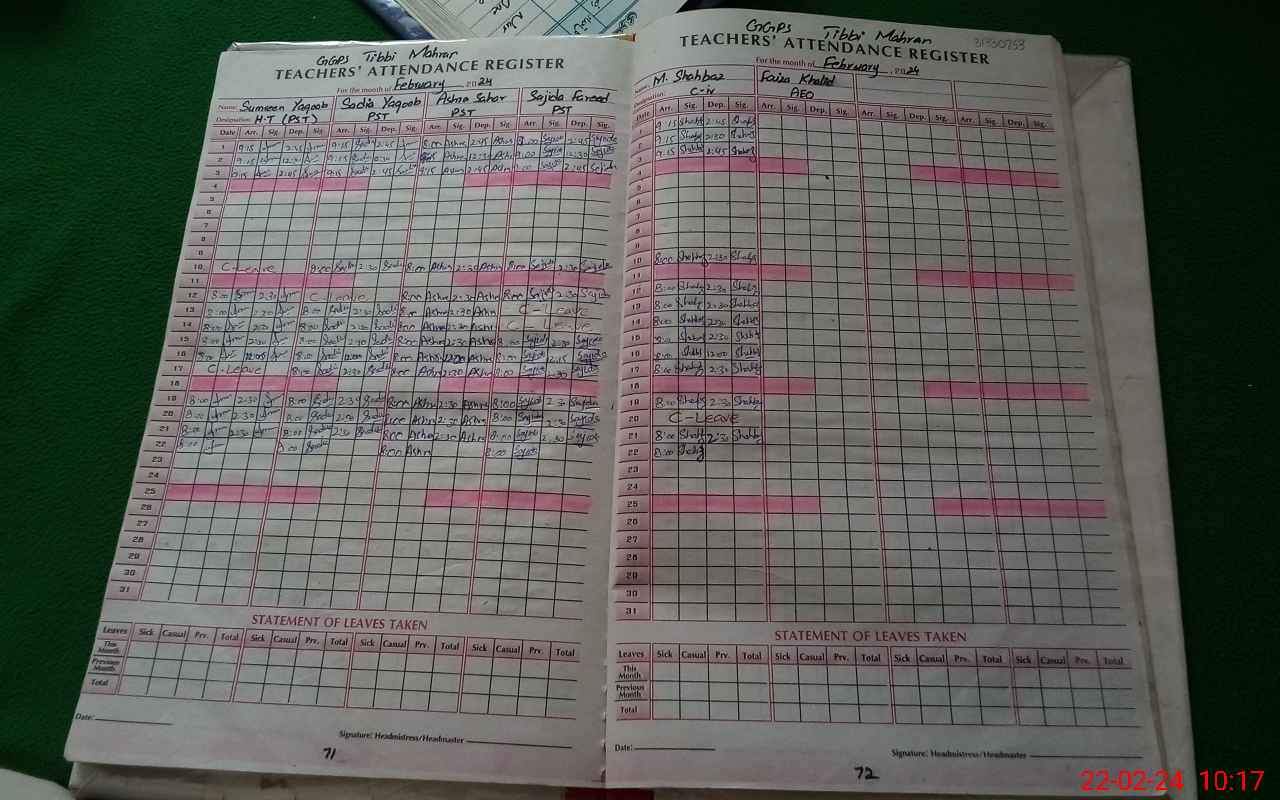 GGPS Tibbi Mahrar
TEACHERS' ATTENDANCE REGISTER
For the month of February, 2024
Name: Sumreen Yaqoob Sadia Yaqoob Ashna Sahar Sajida Fareed
Designation: H-T (PST) PST PST PST
Date Arr. Sig. Dep. Sig. Arr. Sig. Dep. Sig. Arr. Sig. Dep. Sig. Arr. Sig. Dep. Sig.
1 9:15 2:45 9:15 2:45 8:00 Ashna 2:45 Ashna 8:00 Sajida 2:45 Sajida
2 9:15 12:30 9:15 12:30 Ashna 12:30 Ashna 9:00 Sajida 12:30 Sajida
3 9:15 2:45 9:15 2:45 9:15 Ashna 2:45 Ashna 9:00 Sajida 2:45 Sajida
4
5
6
7
8
9
10 C-Leave 8:00 Sadia 2:30 Sadia 8:00 Ashna 2:30 Ashna 8:00 Sajida 2:30 Sajida
11
12 8:00 2:30 C-Leave 8:00 Ashna 2:30 Ashna 8:00 Sajida 2:30 Sajida
13 8:00 2:30 8:00 Sadia 2:30 Sadia 8:00 Ashna 2:30 Ashna C-Leave
14 8:00 2:30 8:00 Sadia 2:30 Sadia 8:00 Ashna 2:30 Ashna C-Leave
15 8:00 2:30 8:00 Sadia 2:30 Sadia 8:00 Ashna 2:30 Ashna 8:00 Sajida 2:30 Sajida
16 8:00 12:00 8:00 Sadia 12:00 Sadia 8:00 Ashna 12:00 Ashna 8:00 Sajida Sajida
17 C-Leave 8:00 Sadia 2:30 Sadia 8:00 Ashna 2:30 Ashna 8:00 Sajida 2:30 Sajida
18
19 8:00 2:30 8:00 Sadia 2:30 Sadia 8:00 Ashna 2:30 Ashna 8:00 Sajida 2:30 Sajida
20 8:00 2:30 8:00 Sadia 2:30 Sadia 8:00 Ashna 2:30 Ashna 8:00 Sajida 2:30 Sajida
21 8:00 2:30 8:00 Sadia 2:30 Sadia 8:00 Ashna 2:30 Ashna 8:00 Sajida 2:30 Sajida
22 8:00 8:00 Sadia 8:00 Ashna 8:00 Sajida
23
24
25
26
27
28
29
30
31
STATEMENT OF LEAVES TAKEN
Leaves Sick Casual Prv. Total Sick Casual Prv. Total Sick Casual Prv. Total Sick Casual Prv. Total
This Month
Previous Month
Total
Date:
Signature: Headmistress/Headmaster
71
GGPS Tibbi Mahran
31330253
TEACHERS' ATTENDANCE REGISTER
For the month of February, 2024
Name: M. Shahbaz Faiza Khalid
Designation: C-iv AEO
Date Arr. Sig. Dep. Sig. Arr. Sig. Dep. Sig. Arr. Sig. Dep. Sig. Arr. Sig. Dep. Sig.
1 9:15 Shahbz 2:45 Shahbz
2 9:15 Shahbz 2:30 Shahbz
3 9:15 Shahbz 2:45 Shahbz
4
5
6
7
8
9
10 8:00 Shahbz 2:30 Shahbz
11
12 8:00 Shahbz 2:30 Shahbz
13 8:00 Shahbz 2:30 Shahbz
14 8:00 Shahbz 2:30 Shahbz
15 8:00 Shahbz 2:30 Shahbz
16 8:00 Shahbz 12:00 Shahbz
17 8:00 Shahbz 2:30 Shahbz
18
19 8:00 Shahbz 2:30 Shahbz
20 C-Leave
21 8:00 Shahbz 2:30 Shahbz
22 8:00 Shahbz
23
24
25
26
27
28
29
30
31
STATEMENT OF LEAVES TAKEN
Leaves Sick Casual Prv. Total Sick Casual Prv. Total Sick Casual Prv. Total Sick Casual Prv. Total
This Month
Previous Month
Total
Date:
Signature: Headmistress/Headmaster
72
22-02-24 10:17